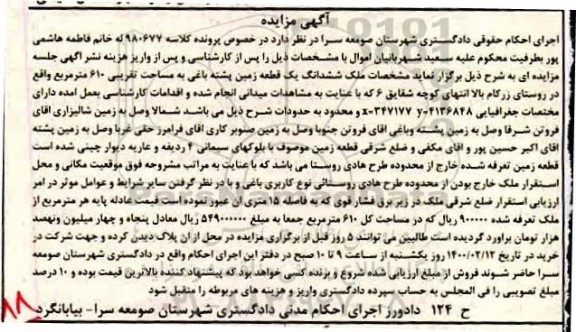 آگهی مزایده
اجرای احکام حقوقی دادگستری شهرستان صومعه سرا در نظر دارد در خصوص پرونده کلاسه ۹۸۰۶۷۷ له خانم فاطمه هاشمی
پور بطرفیت محکوم علیه سعید شهربانیان اموال با مشخصات ذیل را پس از کارشناسی و پس از واریز هزینه نشر آگهی جلسه
مزایده ای به شرح ذیل برگزار نماید مشخصات ملک ششدانگ یک قطعه زمین پشته باغی به مساحت تقریبی ۶۱۰ مترمربع واقع
در روستای زرکام بالا انتهای کوچه شقایق ۶ که با عنایت به مشاهدات میدانی انجام شده و اقدامات کارشناسی بعمل آمده دارای
مختصات جغرافیایی y=۴۱۳۶۸۴۸ x=۳۴۷۱۷۷ و محدود به حدودات شرح ذیل می باشد. شمالا وصل به زمین شالیزاری اقای
فروتن شرقا وصل به زمین پشته وباغی اقای فروتن جنوبا وصل به زمین صنوبر کاری اقای فرامرز حقی غربا وصل به زمین پشته
اقای اکبر حسین پور و اقای مکفی و ضلع شرقی قطعه زمین موصوف با بلوکهای سیمانی ۴ ردیفه و عاریه دیوار چینی شده است
قطعه زمین تعرفه شده خارج از محدوده طرح هادی روستا می باشد که با عنایت به مراتب مشروحه فوق موقعیت مکانی و محل
استقرار ملک خارج بودن از محدوده طرح هادی روستائی نوع کاربری باغی و با در نظر گرفتن سایر شرایط و عوامل موثر در امر
ارزیابی استقرار ضلع شرقی ملک در زیر برق فشار قوی که به فاصله ۱۵ متری آن عبور نموده است قیمت عادله پایه هر مترمربع از
ملک تعرفه شده ۹۰۰۰۰۰ ریال که در مساحت کل ۶۱۰ مترمربع جمعا به مبلغ ۵۴۹۰۰۰۰۰۰ ریال معادل پنجاه و چهار میلیون ونهصد
هزار تومان براورد گردیده است طالبین می توانند ۵ روز قبل از برگزاری مزایده در محل از ان پلاک دیدن کرده و جهت شرکت در
خرید در تاریخ ۱۴۰۰/۰۲/۱۲ روز یکشنبه از ساعت ۹ تا ۱۰ صبح در دفتر این اجرای احکام واقع در دادگستری شهرستان صومعه
سرا حاضر شوند فروش از مبلغ ارزیابی شده شروع و برنده کسی خواهد بود که پیشنهاد کننده بالاترین قیمت بوده و ۱۰ درصد
مبلغ تصویبی را فی المجلس به حساب سپرده دادگستری واریز و هزینه های مربوطه را متقبل شود
ح ۱۲۴ دادورز اجرای احکام مدنی دادگستری شهرستان صومعه سرا- بیابانگرد